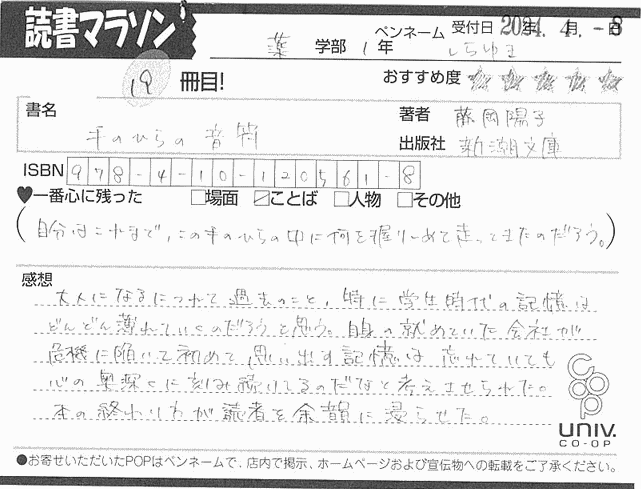 読書マラソン
薬 学部 1年
ペンネーム しらゆき
受付日 2024年 4月 -8日
19 冊目!
おすすめ度 ★★★★★
書名 手のひらの音符
著者 藤岡陽子
出版社 新潮文庫
ISBN 978-4-10-120561-8
♥一番心に残った □場面 ☑ことば □人物 □その他
(自分はこれまで、この手のひらの中に何を握りしめて走ってきたのだろう。)
感想
大人になるにつれて過去のこと、特に学生時代の記憶は
どんどん薄れていくのだろうと思う。自身の就めていた会社が
危機に陥いて初めて思い出す記憶は忘れていても
心の奥深くに刻み続いてるのだなと考えさせられた。
本の終わりわが読者を余韻に浸らせた。
co-op
UNIV.
CO-OP
●お寄せいただいたPOPはペンネームで、店内で掲示、ホームページおよび宣伝物への転載をご了承ください。